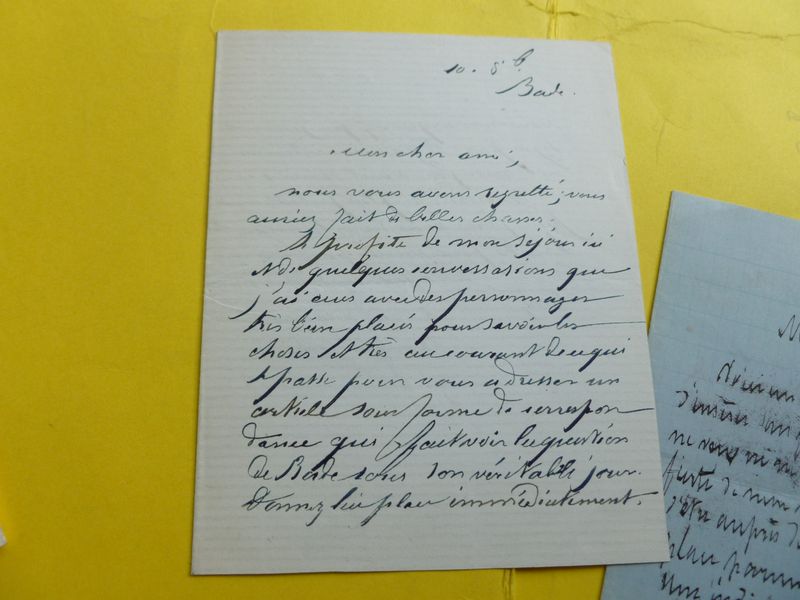 10. 8b.
Bade.
Mon cher ami,
nous vous avons regretté, vous
auriez fait de belles chasses.
Je profite de mon séjour ici
& de quelques conversations que
j'ai eues avec des personnages
très bien placés pour savoir les
choses et très au courant de ce qui
se passe pour vous adresser un
article sous forme de correspon
dance qui fait voir la question
de Bade sous son véritable jour.
Donnez lui place immédiatement.
Voici un
d'insérer dans
ne vous
place